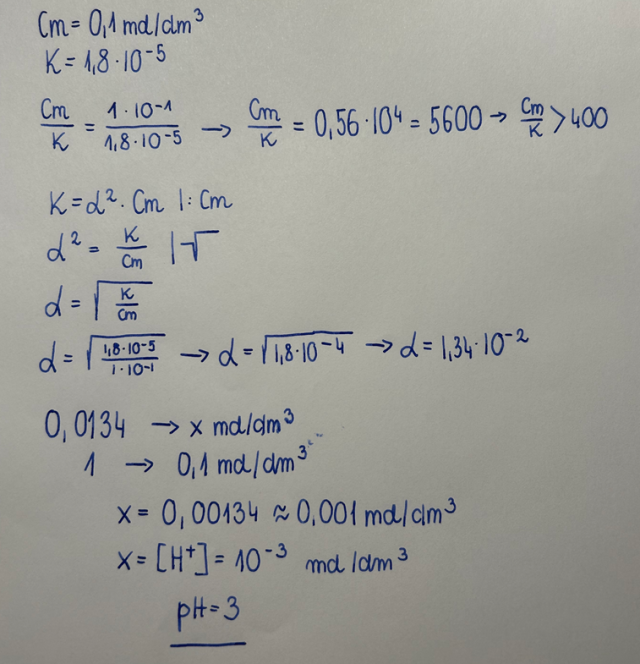 Cm = 0,1 mol/dm³
K = 1,8·10⁻⁵
Cm/K = 1·10⁻¹/1,8·10⁻⁵ → Cm/K = 0,56·10⁴ = 5600 → Cm/K > 400
K = α²·Cm |:Cm
α² = K/Cm |√
α = √(K/Cm)
α = √(1,8·10⁻⁵/1·10⁻¹) → α = √(1,8·10⁻⁴) → α = 1,34·10⁻²
0,0134 → x mol/dm³
1 → 0,1 mol/dm³
x = 0,00134 ≈ 0,001 mol/dm³
x = [H⁺] = 10⁻³ mol/dm³
pH = 3